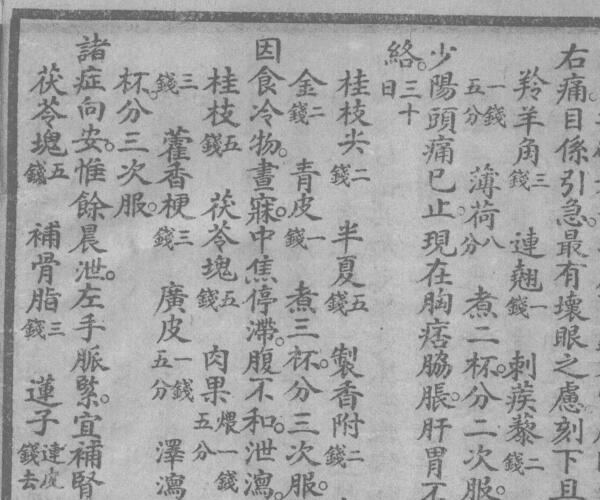 右痛。目係引急。最有壞眼之慮。刻下且
羚羊角三錢 連翹一錢 刺蒺藜二錢
一錢五分 薄荷八分 煮二杯。分二次服。
少陽頭痛已止。現在胸痞脇脹。肝胃不
絡。三十日
桂枝尖二錢 半夏五錢 製香附二錢
金二錢 青皮一錢 煮三杯。分三次服。
因食冷物。晝寐。中焦停滯。腹不和泄瀉。
桂枝五錢 茯苓塊五錢 肉果煨一錢五分
三錢 藿香梗三錢 廣皮一錢五分 澤瀉
杯。分三次服。
諸症向安。惟餘晨泄。左手脈緊。宜補腎
茯苓塊五錢 補骨脂三錢 蓮子連皮錢去